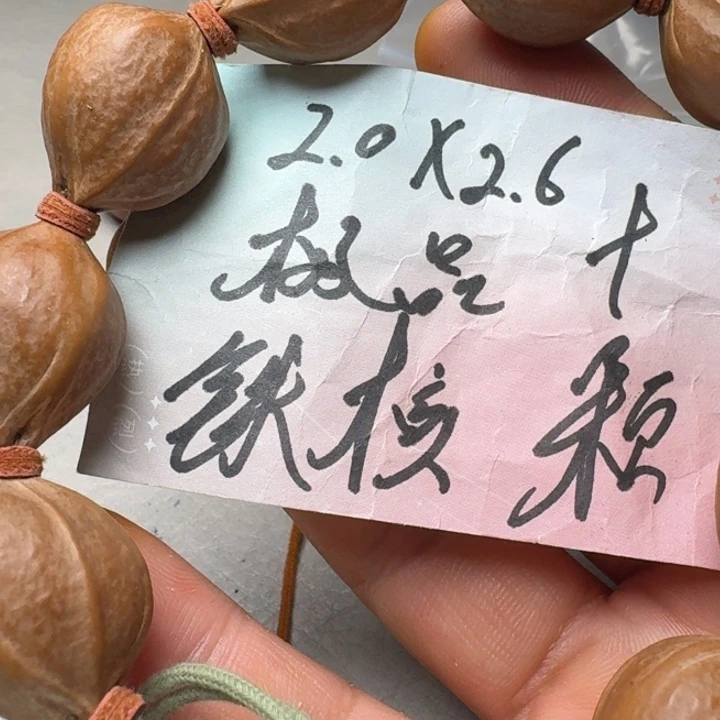 2.0X2.6
极品 十
铁核 颗